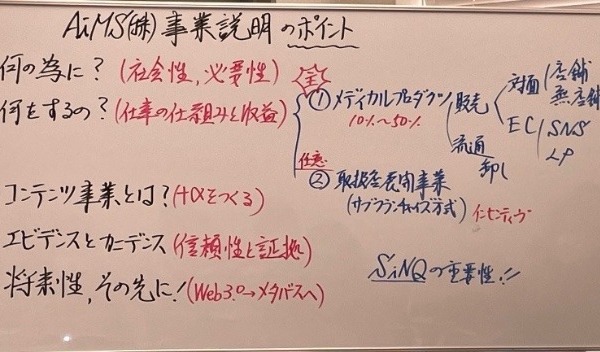 AiMS(株)事業説明のポイント
何の為に?(社会性,必要性)
何をするの?(仕事の仕組みと収益)
① メディカルプロダクツ
10%〜50%
販売
対面
店舗
無店舗
EC
SNS
LP
流通
卸し
任意
② 取扱店展開事業
(サブフランチャイズ方式)
インセンティヴ
コンテンツ事業とは?(+αをつくる)
エビデンスとカーデンス(信頼性と証拠)
将来性,その先に!(Web3.0→メタバースへ)
SiNQの重要性!!